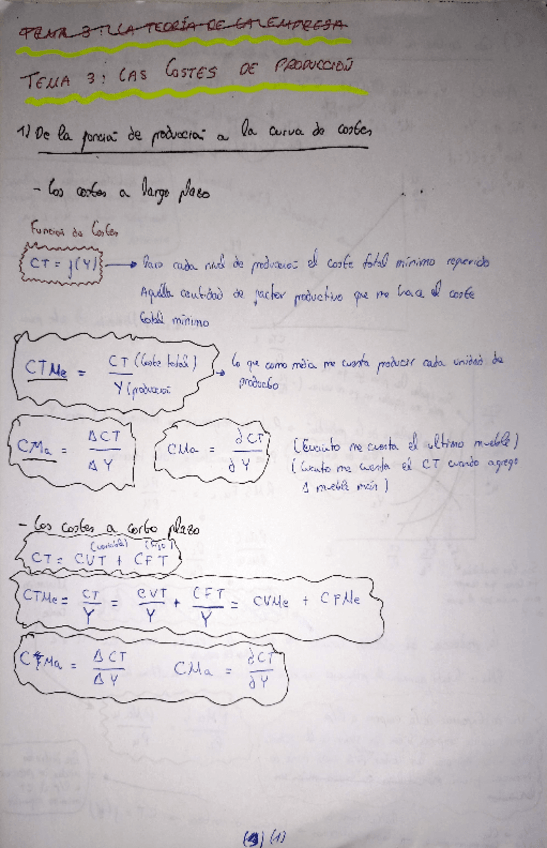 TEMA 3: LA TEORÍA DE LA EMPRESA
TEMA 3: LAS COSTES DE PRODUCCIÓN
1) De la función de producción a la curva de costes
- Los costes a largo plazo
Función de Costes
CT = f(Y) → Para cada nivel de producción el coste total mínimo requerido
Aquella cantidad de factor productivo que me hace el coste
total mínimo
CTMe = CT (Coste total) / Y (producción → Lo que como media me cuesta producir cada unidad de
producto
CMa = ΔCT / ΔY CMa = ∂CT / ∂Y (Cuánto me cuesta el ultimo mueble)
(Cuanto me cuesta el CT cuando agrego
1 mueble más)
- Los costes a corto plazo
(variable) (fijo)
CT = CVT + CFT
CTMe = CT / Y = CVT / Y + CFT / Y = CVMe + CFMe
CMa = ΔCT / ΔY CMa = ∂CT / ∂Y
(1)